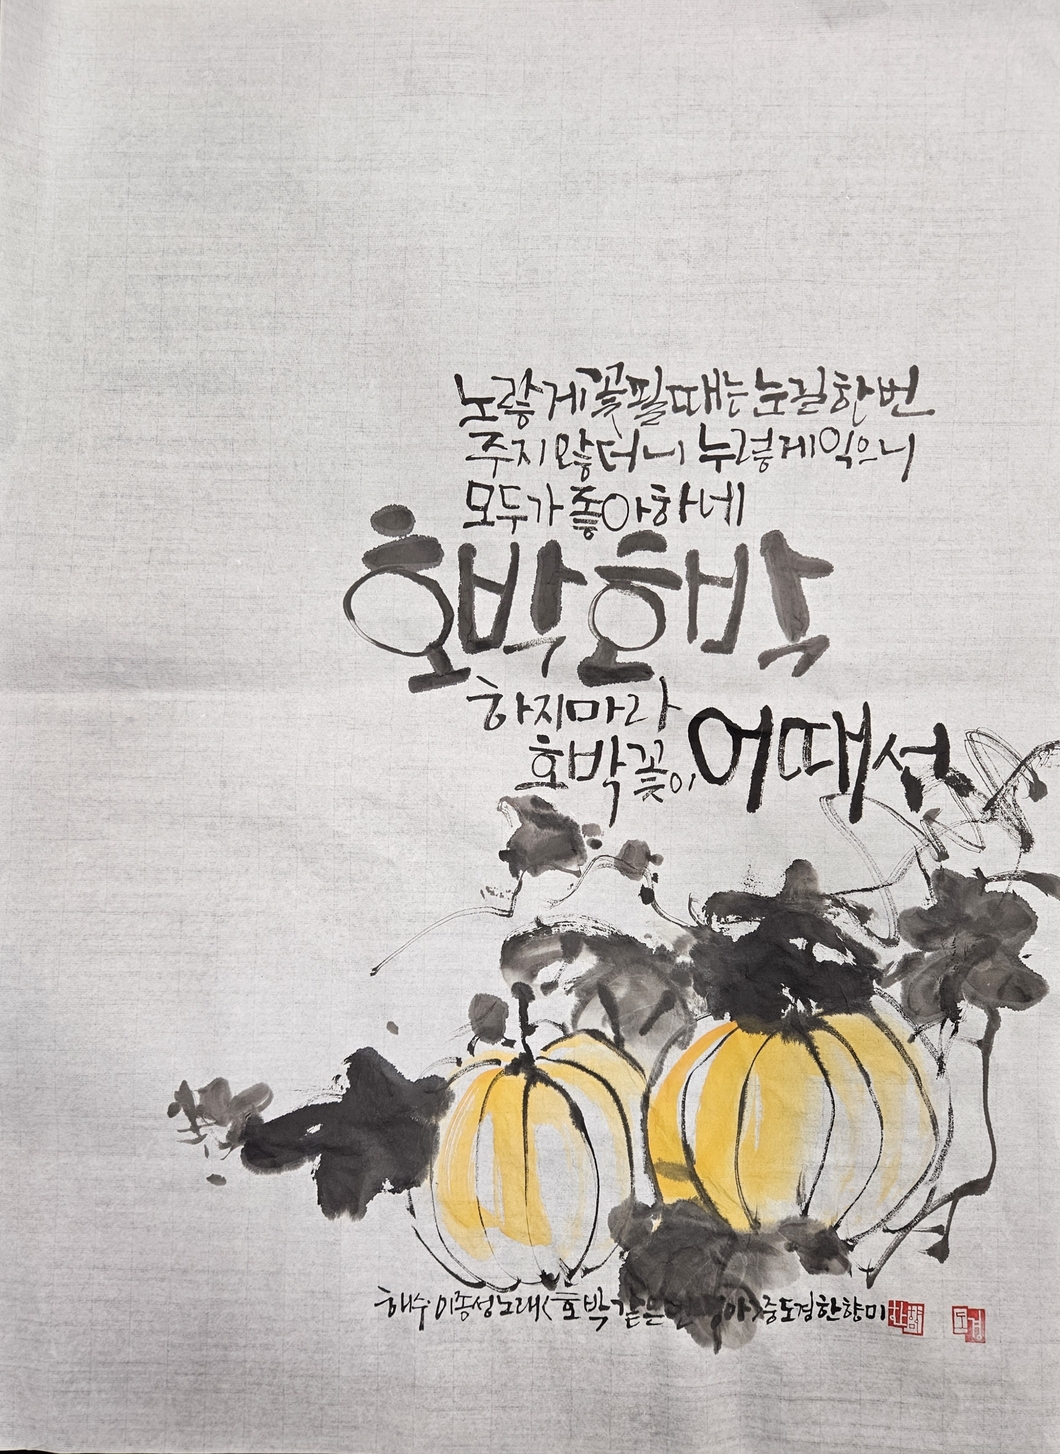 노랗게 꽃필때는 눈길한번
주지않더니 누렇게 익으니
모두가 좋아하네
호박호박
하지마라
호박꽃이 어때서
해수 이종성 노래<호박같은 >중 도경 한향미
도경